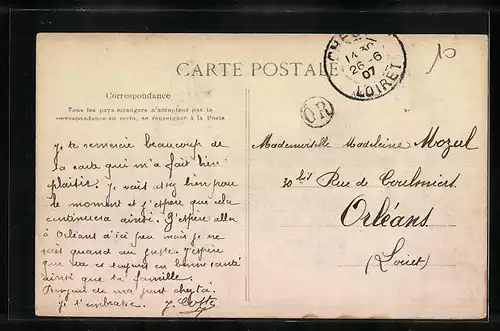 CARTE POSTALE
CHE
14 30
26-6
07
LOIRET
OR
Correspondance
Tous les pays étrangers n'acceptent pas la
correspondance au recto, se renseigner à la Poste
Je te remercie beaucoup de
la carte qui m'a fait bien
plaisir. Je vais assez bien pour
le moment et j'espère que cela
continuera ainsi. J'espère aller
à Orléans d'ici peu mais je ne
sais quand au juste. J'espère
que tu es toujours en bonne santé
ainsi que ta famille.
Bonjour de ma part chez toi.
Je t'embrasse. J.
Mademoiselle Madeleine Mozul
30 bis Rue de Coulmiers
Orléans
(Loiret)